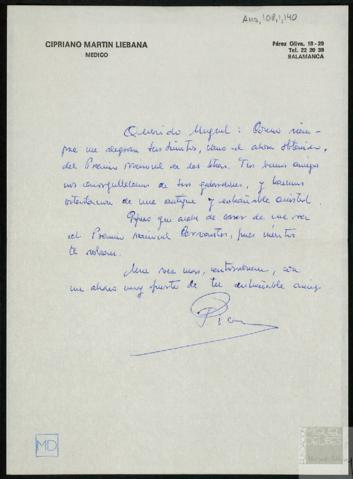 AMD, 108, 1, 140
CIPRIANO MARTIN LIEBANA
MEDICO
Pérez Oliva, 18-20
Tel. 22 20 39
SALAMANCA
Querido Miguel: Como siem-
pre me alegran tus triunfos, como el ahora obtenido,
del Premio Nacional de las Letras. Tus buenos amigos
nos enorgullecemos de tus galardones, y hacemos
ostentación de una antigua y entrañable amistad.
que de de una vez
el Premio Nacional Cervantes, pues méritos
te sobran.
Una vez más, enhorabuena, con
un abrazo muy fuerte de tu entrañable amigo
MD